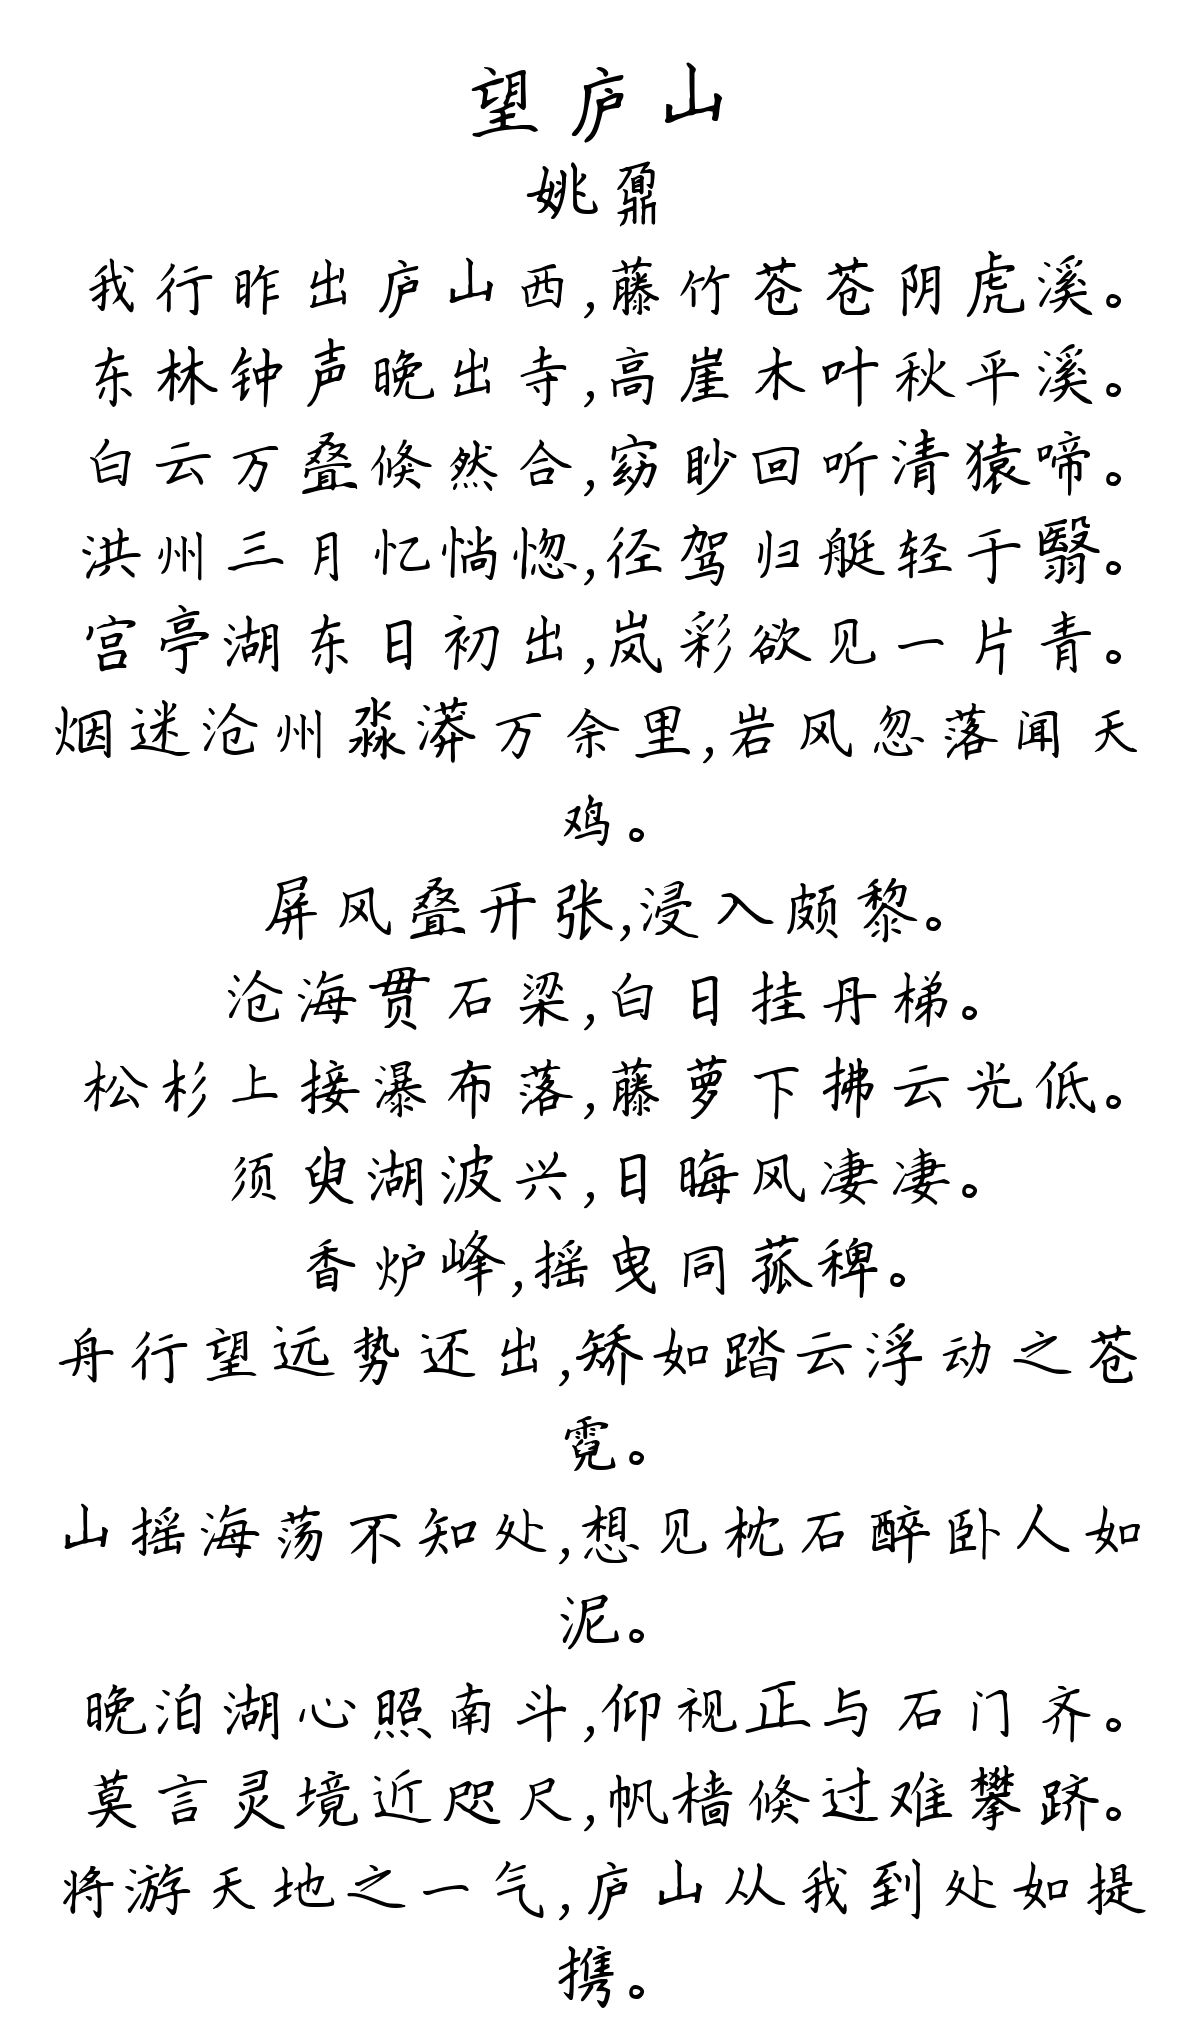 望庐山
姚鼐
我行昨出庐山西,藤竹苍苍阴虎溪。
东林钟声晚出寺,高崖木叶秋平溪。
白云万叠倏然合,窈眇回听清猿啼。
洪州三月忆惝惚,径驾归艇轻于翳。
宫亭湖东日初出,岚彩欲见一片青。
烟迷沧州淼漭万余里,岩风忽落闻天
鸡。
屏风叠开张,浸入颇黎。
沧海贯石梁,白日挂丹梯。
松杉上接瀑布落,藤萝下拂云光低。
须臾湖波兴,日晦风凄凄。
香炉峰,摇曳同菰稗。
舟行望远势还出,矫如踏云浮动之苍
霓。
山摇海荡不知处,想见枕石醉卧人如
泥。
晚泊湖心照南斗,仰视正与石门齐。
莫言灵境近咫尺,帆樯倏过难攀跻。
将游天地之一气,庐山从我到处如提
携。